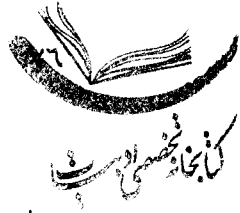 کتابخانه تخصصی ادبیات